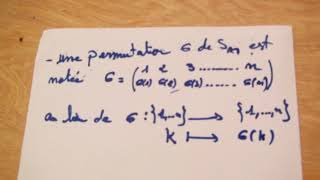 - une permutation σ de Sn est
notée σ = ( 1 2 3 ......... n
σ(1) σ(2) σ(3) ...... σ(n) )
au lieu de σ : {1,...n} ⟶ {1,...,n}
k ⟼ σ(k)